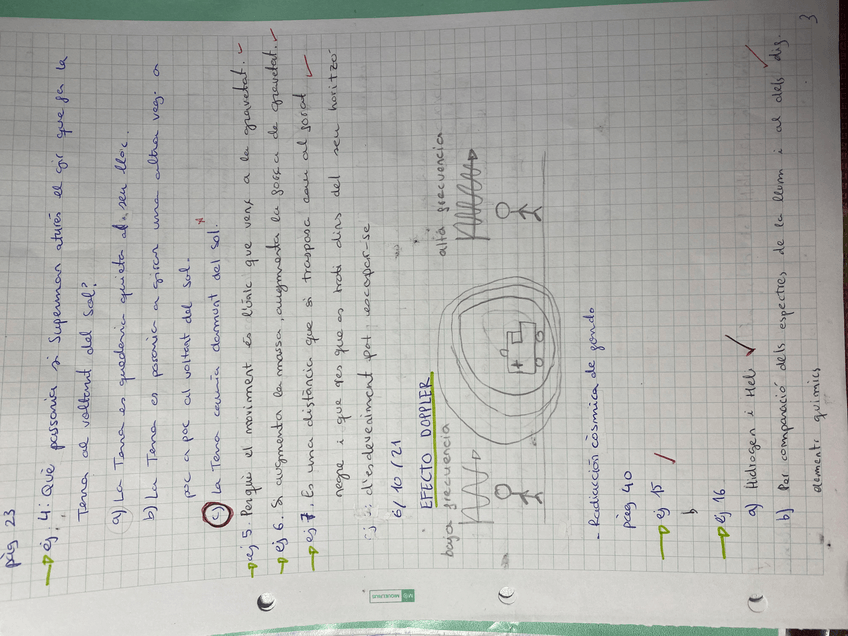 pàg 23
ej. 4: Què passaria si Superman aturés el gir que fa la
Terra al voltant del Sol?
a) La Terra es quedaria quieta al seu lloc.
b) La Terra es posaria a girar una altra veg. a
poc a poc al voltant del sol.
c) La Terra cauria damunt del sol.
ej 5. Perquè el moviment és l'únic que venç a la gravetat.
ej 6. Si augmenta la massa, augmenta la força de gravetat.
ej 7. És una distància que si traspasa cau al forat
negre i que res que es trobi dins del seu horitzó
d'esdeveniment pot escapar-se
6/10/21
EFECTO DOPPLER
baja frecuencia
alta frecuencia
- Radiación còsmica de fondo
pàg 40
ej 15
b
ej 16
a) Hidrogen i Heli
b) Per comparació dels espectres de la llum i al dels dif.
elements químics
3
MIQUELRIUS